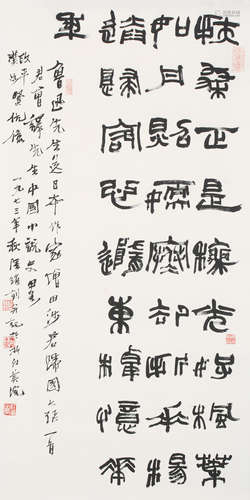 扶桑正是穐光好楓葉
如丹照嫩寒却折垂楊
送歸客心隨東棹憶華
年
魯迅先生送日本作家增田涉君歸國之詩一首
君曾譯先生中國小說史略
賢伉儷
一九七三年秋陸維釗并記於浙江美院